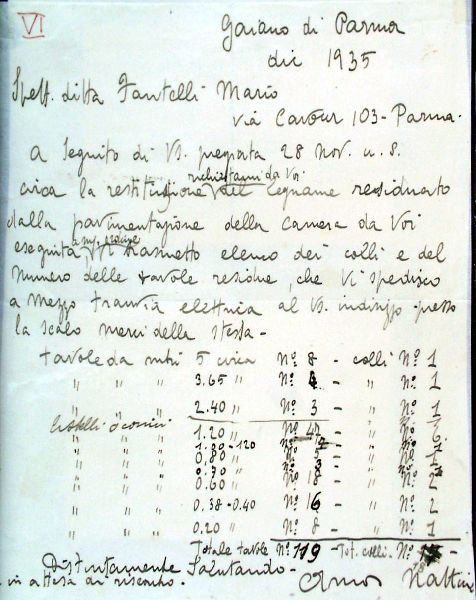 VI
Gaiano di Parma
dic 1935
Spett. ditta Fantelli Mario
via Cavour 103 - Parma.
A seguito di Vs. pregiata 28 Nov. u.s.
richiestami da Voi
circa la restituzione del legname residuato
dalla pavimentazione della camera da Voi
eseguita trasmetto elenco dei colli e del
numero delle tavole residue, che Vi spedisco
a mezzo tramvia elettrica al Vs. indirizzo presso
lo scalo merci della stessa -
tavole da metri 5 circa Nº 8 - colli Nº 1
" " " 3.65 " Nº 4 - " Nº 1
" " " 2.40 " Nº 3 - " Nº 1
" " 1.20 " Nº - " Nº
" " " 1.30-120 Nº
" " " 0.80 " Nº
" " " 0.70 " Nº
" " " 0.60 " Nº 18 - " Nº 2
" " " 0.38-0.40 Nº 16 - " Nº 2
" " " 0.20 " Nº 8 - " Nº 1
Totale tavole Nº 119 - Tot. colli - Nº
Distintamente Salutando -
in attesa di riscontro. Amos Nattini